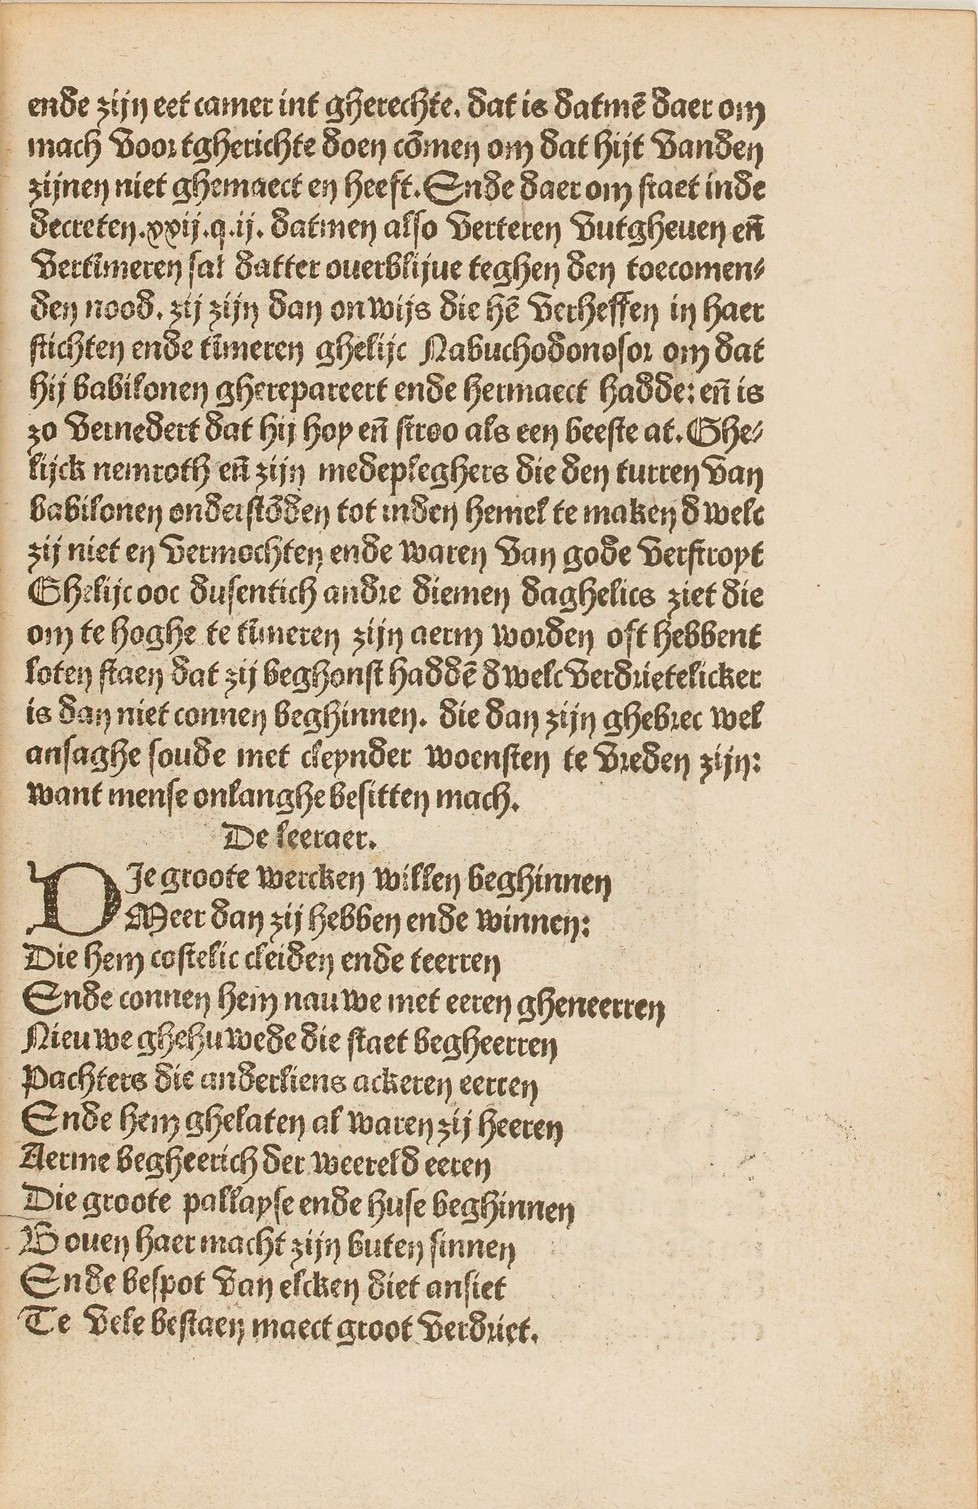 ende zijn eet camer int gherechte. dat is datmē daer om
mach voor tgherichte doen cōmen om dat hijt vanden
zijnen niet ghemaect en heeft. Ende daer om staet inde
decreten .xxij.q.ij. datmen also verteren vutgheuen eñ
vertīmeren sal datter ouerblijue teghen den toecomen⸗
den nood. zij zijn dan onwijs die hē verheffen in haer
stichten ende tīmeren ghelijc Nabuchodonosor om dat
hij babilonen gherepareert ende hermaect hadde: eñ is
zo vernedert dat hij hoy eñ stroo als een beeste at. Ghe⸗
lijck nemroth eñ zijn medepleghers die den turren van
babilonen onderstōden tot inden hemel te maken dwelc
zij niet en vermochten ende waren van gode verstroyt
Ghelijc ooc dusentich andre diemen daghelics ziet die
om te hoghe te tīmeren zijn aerm worden oft hebbent
loten staen dat zij beghonst haddē dwelc verdrietelicker
is dan niet connen beghinnen. die dan zijn ghebrec wel
ansaghe soude met cleynder woensten te vreden zijn:
want mense onlanghe besitten mach.
De leeraer.
DJe groote wercken willen beghinnen
Meer dan zij hebben ende winnen:
Die hem costelic cleiden ende teerren
Ende connen hem nauwe met eeren gheneerren
Nieuwe ghehuwede die staet begheerren
Pachters die anderliens ackeren eerren
Ende hem ghelaten al waren zij heeren
Aerme begheerich der weereld eeren
Die groote pallayse ende huse beghinnen
Bouen haer macht zijn buten sinnen
Ende bespot van elcken diet ansiet
Te vele bestaen maect groot verdriet.